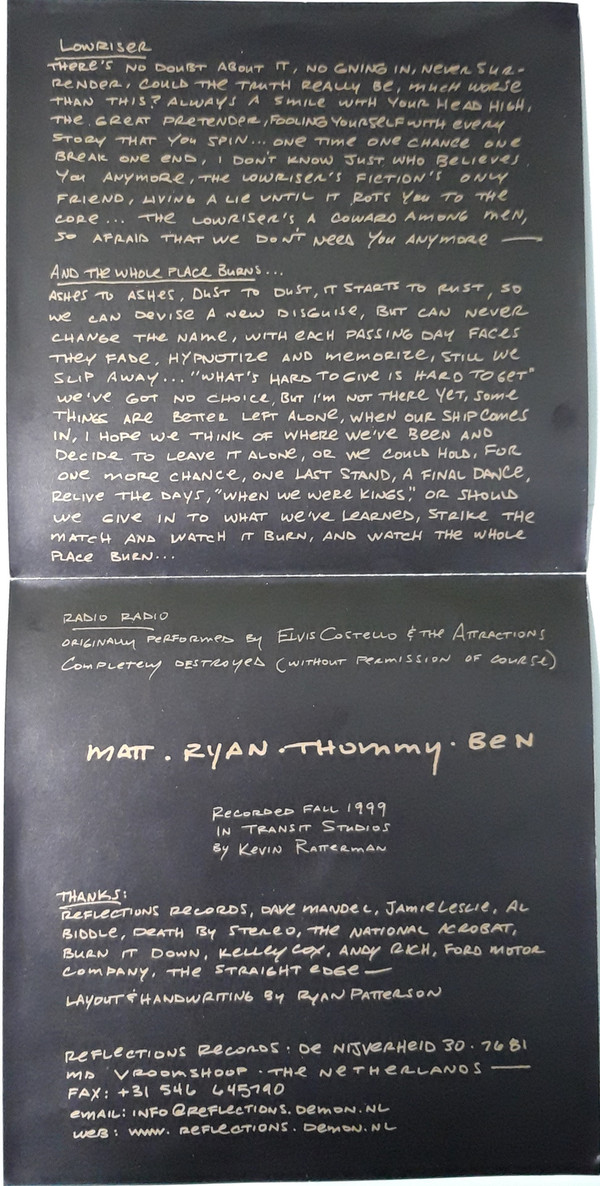 LOWRISER
THERE'S NO DOUBT ABOUT IT, NO GIVING IN, NEVER SUR-
RENDER, COULD THE TRUTH REALLY BE, MUCH WORSE
THAN THIS? ALWAYS A SMILE WITH YOUR HEAD HIGH,
THE GREAT PRETENDER, FOOLING YOURSELF WITH EVERY
STORY THAT YOU SPIN... ONE TIME ONE CHANCE ONE
BREAK ONE END, I DON'T KNOW JUST WHO BELIEVES
YOU ANYMORE, THE LOWRISER'S FICTION'S ONLY
FRIEND, LIVING A LIE UNTIL IT ROTS YOU TO THE
CORE... THE LOWRISER'S A COWARD AMONG MEN,
SO AFRAID THAT WE DON'T NEED YOU ANYMORE —
AND THE WHOLE PLACE BURNS...
ASHES TO ASHES, DUST TO DUST, IT STARTS TO RUST, SO
WE CAN DEVISE A NEW DISGUISE, BUT CAN NEVER
CHANGE THE NAME, WITH EACH PASSING DAY FACES
THEY FADE, HYPNOTIZE AND MEMORIZE, STILL WE
SLIP AWAY... "WHAT'S HARD TO GIVE IS HARD TO GET"
WE'VE GOT NO CHOICE, BUT I'M NOT THERE YET, SOME
THINGS ARE BETTER LEFT ALONE, WHEN OUR SHIP COMES
IN, I HOPE WE THINK OF WHERE WE'VE BEEN AND
DECIDE TO LEAVE IT ALONE, OR WE COULD HOLD, FOR
ONE MORE CHANCE, ONE LAST STAND, A FINAL DANCE,
RELIVE THE DAYS, "WHEN WE WERE KINGS." OR SHOULD
WE GIVE IN TO WHAT WE'VE LEARNED, STRIKE THE
MATCH AND WATCH IT BURN, AND WATCH THE WHOLE
PLACE BURN...
RADIO RADIO
ORIGINALLY PERFORMED BY ELVIS COSTELLO & THE ATTRACTIONS
COMPLETELY DESTROYED (WITHOUT PERMISSION OF COURSE)
MATT · RYAN · THOMMY · BEN
RECORDED FALL 1999
IN TRANSIT STUDIOS
BY KEVIN RATTERMAN
THANKS:
REFLECTIONS RECORDS, DAVE MANDEL, JAMIE LESLIE, AL
BIDDLE, DEATH BY STEREO, THE NATIONAL ACROBAT,
BURN IT DOWN, KELLEY COX, ANDY RICH, FORD MOTOR
COMPANY, THE STRAIGHT EDGE —
LAYOUT & HANDWRITING BY RYAN PATTERSON
REFLECTIONS RECORDS: DE NIJVERHEID 30 · 7681
MD VROOMSHOOP · THE NETHERLANDS —
FAX: +31 546 645790
EMAIL: INFO@REFLECTIONS.DEMON.NL
WEB: WWW.REFLECTIONS.DEMON.NL